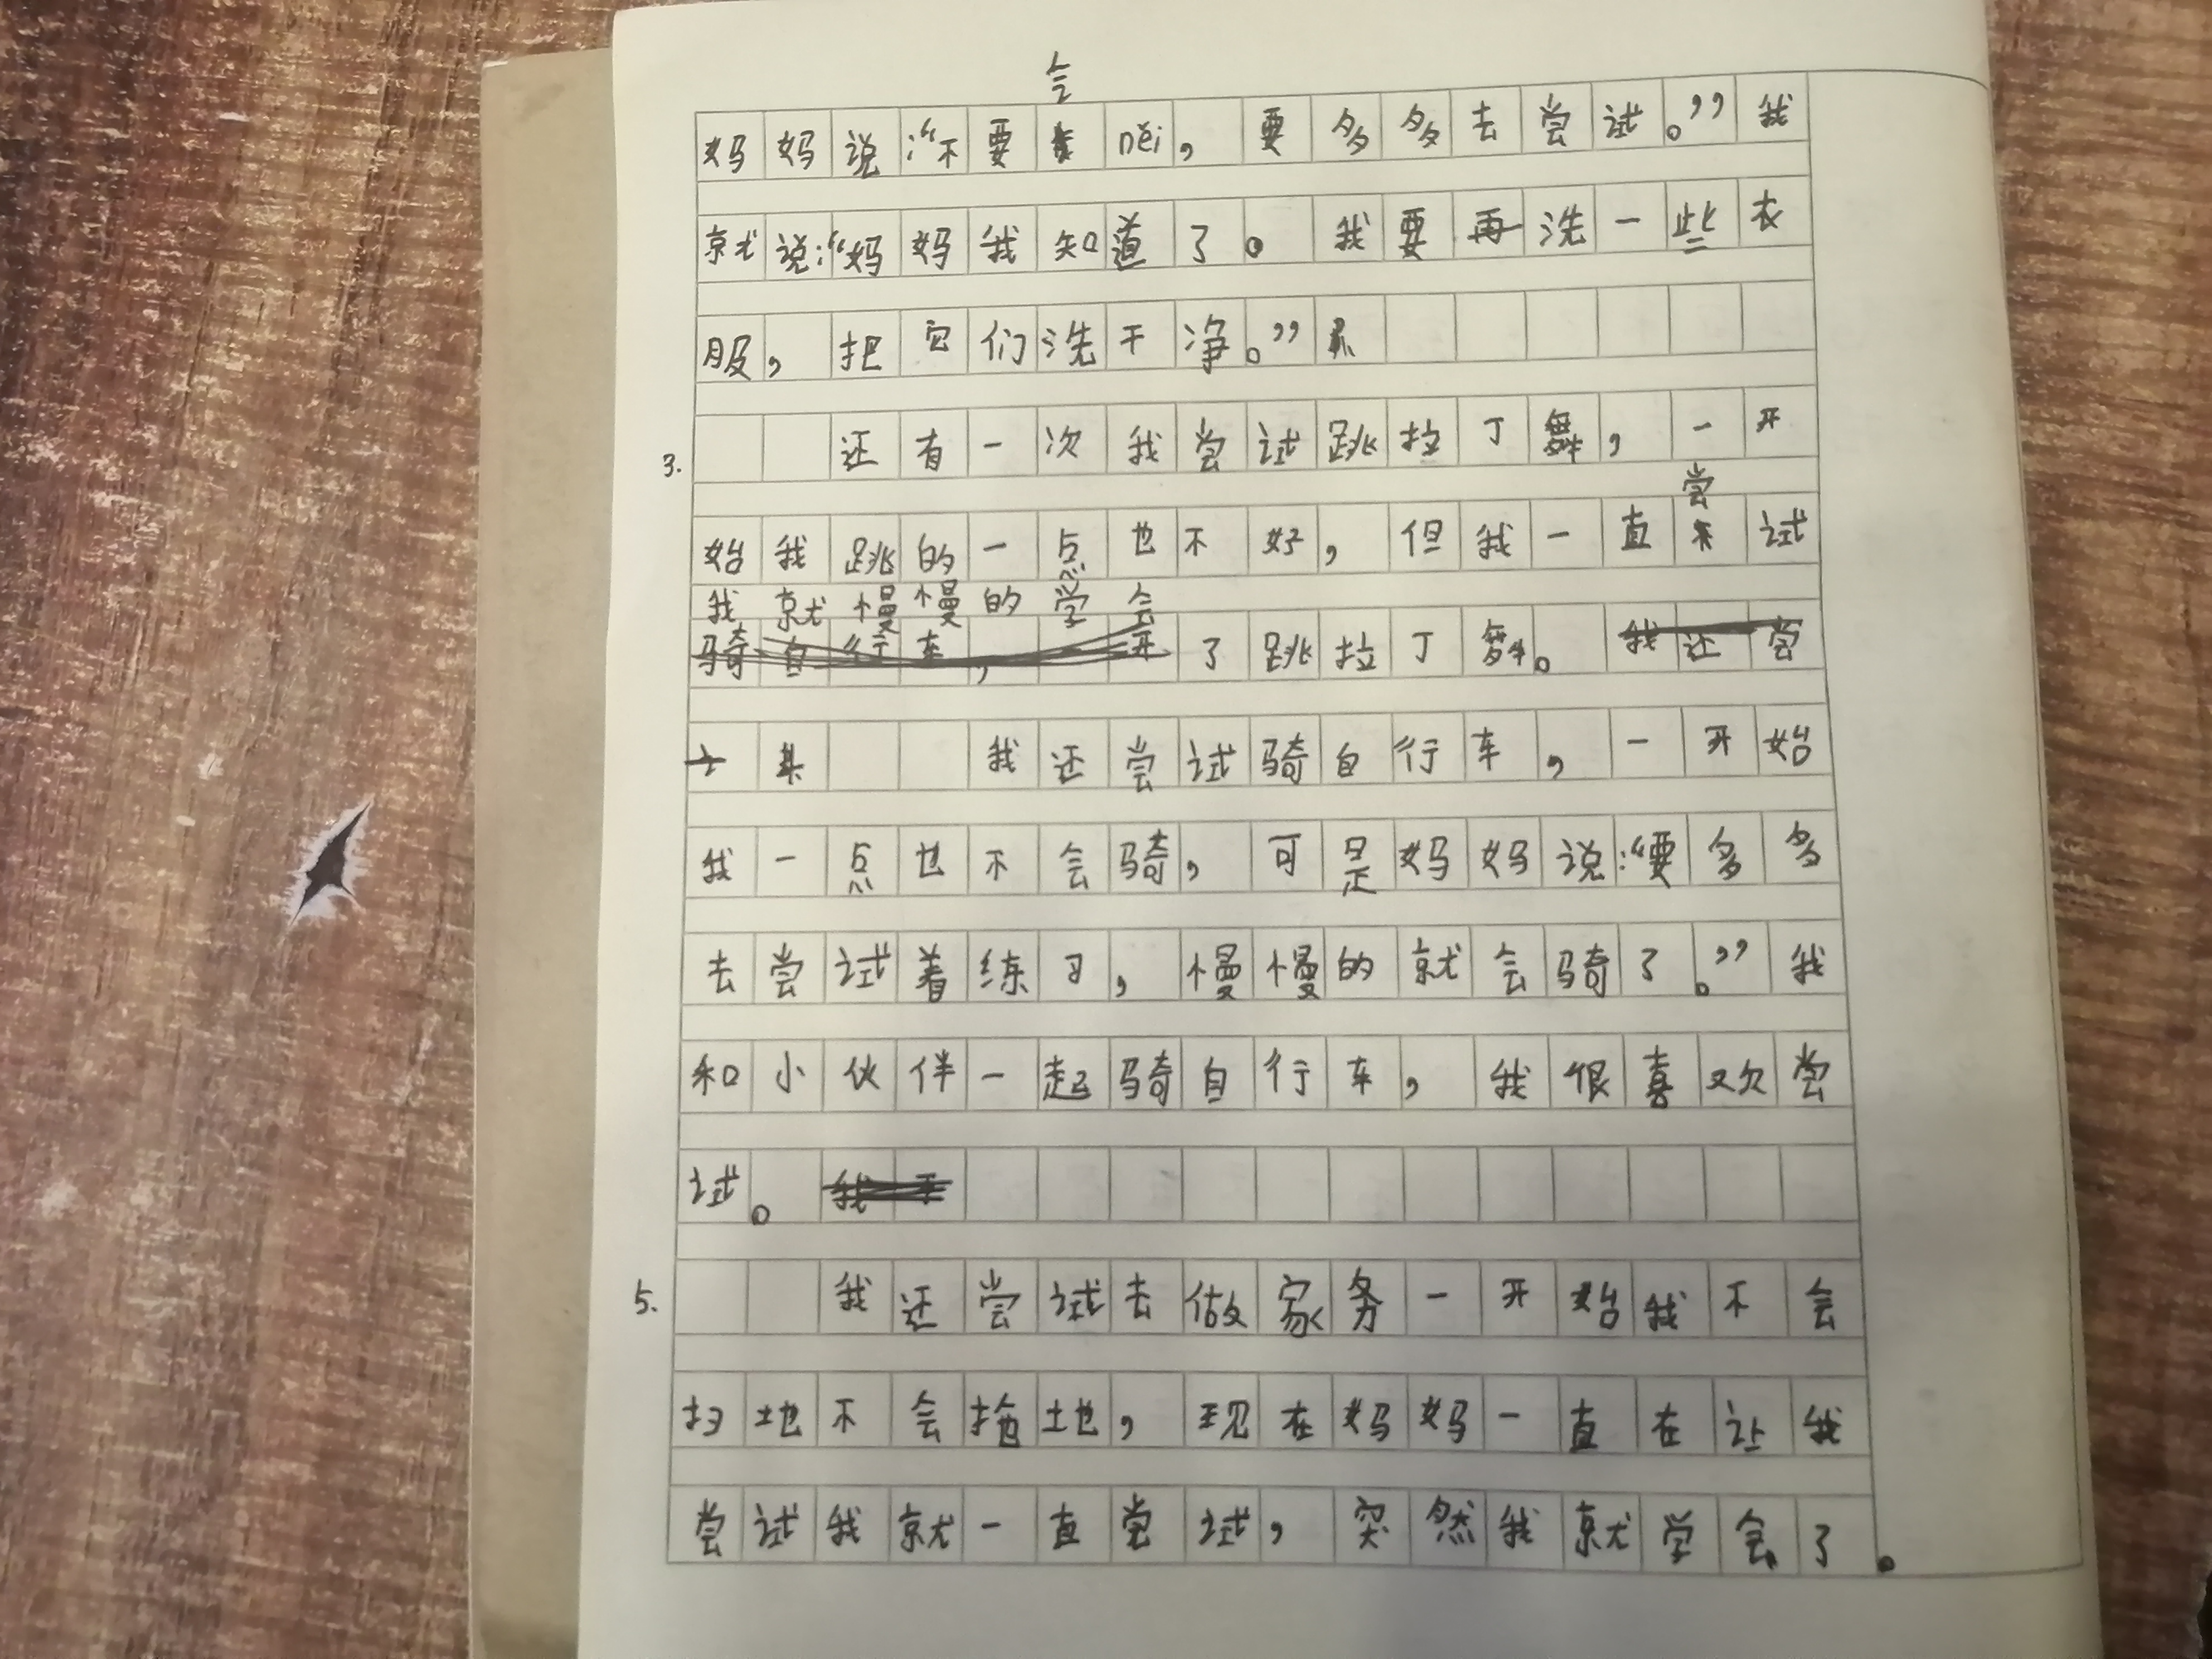 会
妈妈说:“不要něi，要多多去尝试。”我
就说:“妈妈我知道了。我要再洗一些衣
服，把它们洗干净。”
3. 还有一次我尝试跳拉丁舞，一开
尝
始我跳的一点也不好，但我一直试
我就慢慢的学会
骑自行车，开了跳拉丁舞。我还尝
我还尝试骑自行车，一开始
我一点也不会骑，可是妈妈说:“要多多
去尝试着练习，慢慢的就会骑了。”我
和小伙伴一起骑自行车，我很喜欢尝
试。我不
5. 我还尝试去做家务一开始我不会
扫地不会拖地，现在妈妈一直在让我
尝试我就一直尝试，突然我就学会了。